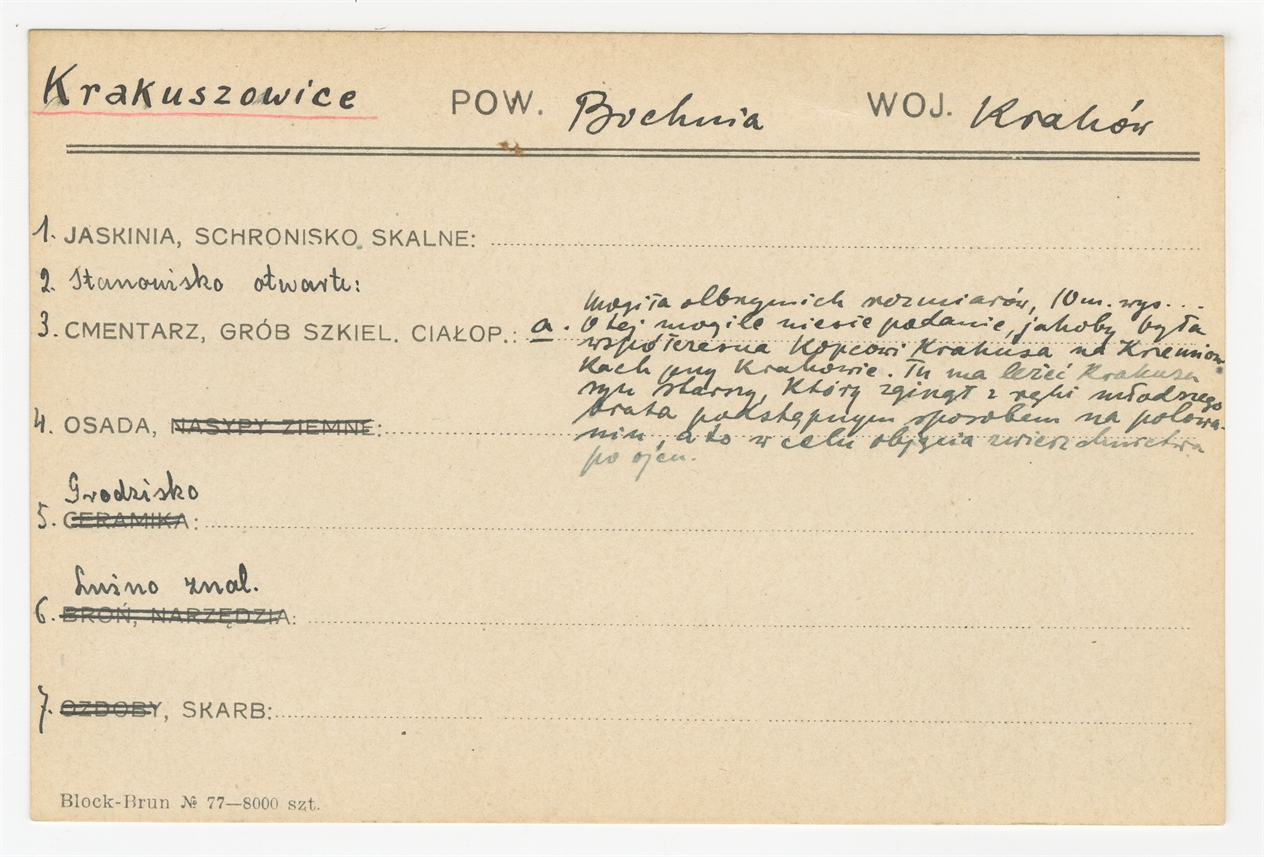 Krakuszowice POW. Bochnia WOJ. Kraków
1. JASKINIA, SCHRONISKO SKALNE:
2. Stanowisko otwarte:
3. CMENTARZ, GRÓB SZKIEL. CIAŁOP.: a.
Mogiła olbrzymich rozmiarów, 10 m. wys...
O tej mogile niesie podanie, jakoby była
współczesna Kopcowi Krakusa na Krzemion-
kach przy Krakowie. Tu ma leżeć Krakusa
syn starszy, który zginął z ręki młodszego
brata podstępnym sposobem na polowa-
niu, a to w celu objęcia zwierzchnictwa
po ojcu.
4. OSADA, NASYPY ZIEMNE:
Grodzisko
5. CERAMIKA:
Luźno znal.
6. BROŃ, NARZĘDZIA:
7. OZDOBY, SKARB:
Block-Brun № 77—8000 szt.